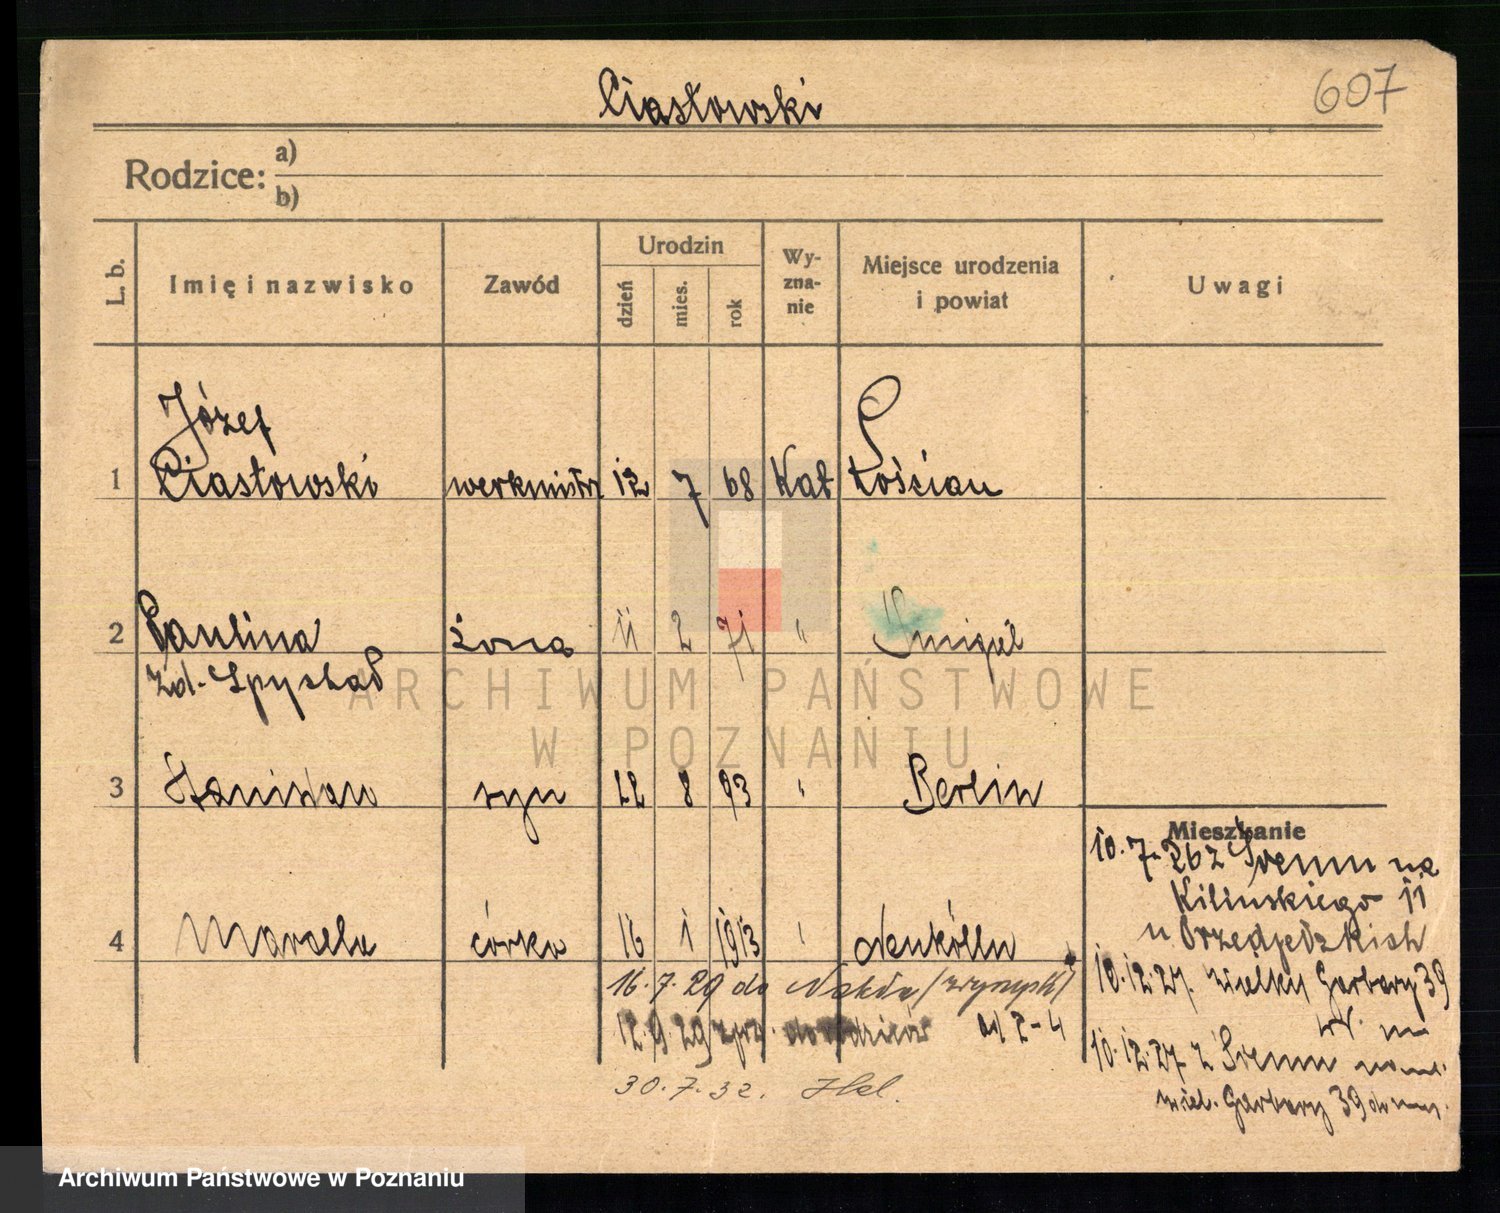 Ciasłowski
607
Rodzice: a)
b)
L. b.
Imię i nazwisko
Zawód
Urodzin
dzień
mies.
rok
Wy-
zna-
nie
Miejsce urodzenia
i powiat
Uwagi
Józef
1 Ciasłowski werkmistrz 12 7 68 Kat Kościan
2 Paulina żona 11 2 71 " Smigiel
zd.
3 Stanisław syn 22 8 93 " Berlin
Mieszkanie
10.7. 26 z Śremu na
Kilińskiego 11
u
4 Marcela córka 16 1 1913 " Neukölln
10.12.27. Wielkie Garbary 39
16.7.29 do Nakła
12.9.29 do rodziców od 2-4
10.12.27 z Śremu
wiel. Garbary 39
30.7.32.
ARCHIWUM PAŃSTWOWE
W POZNANIU
Archiwum Państwowe w Poznaniu